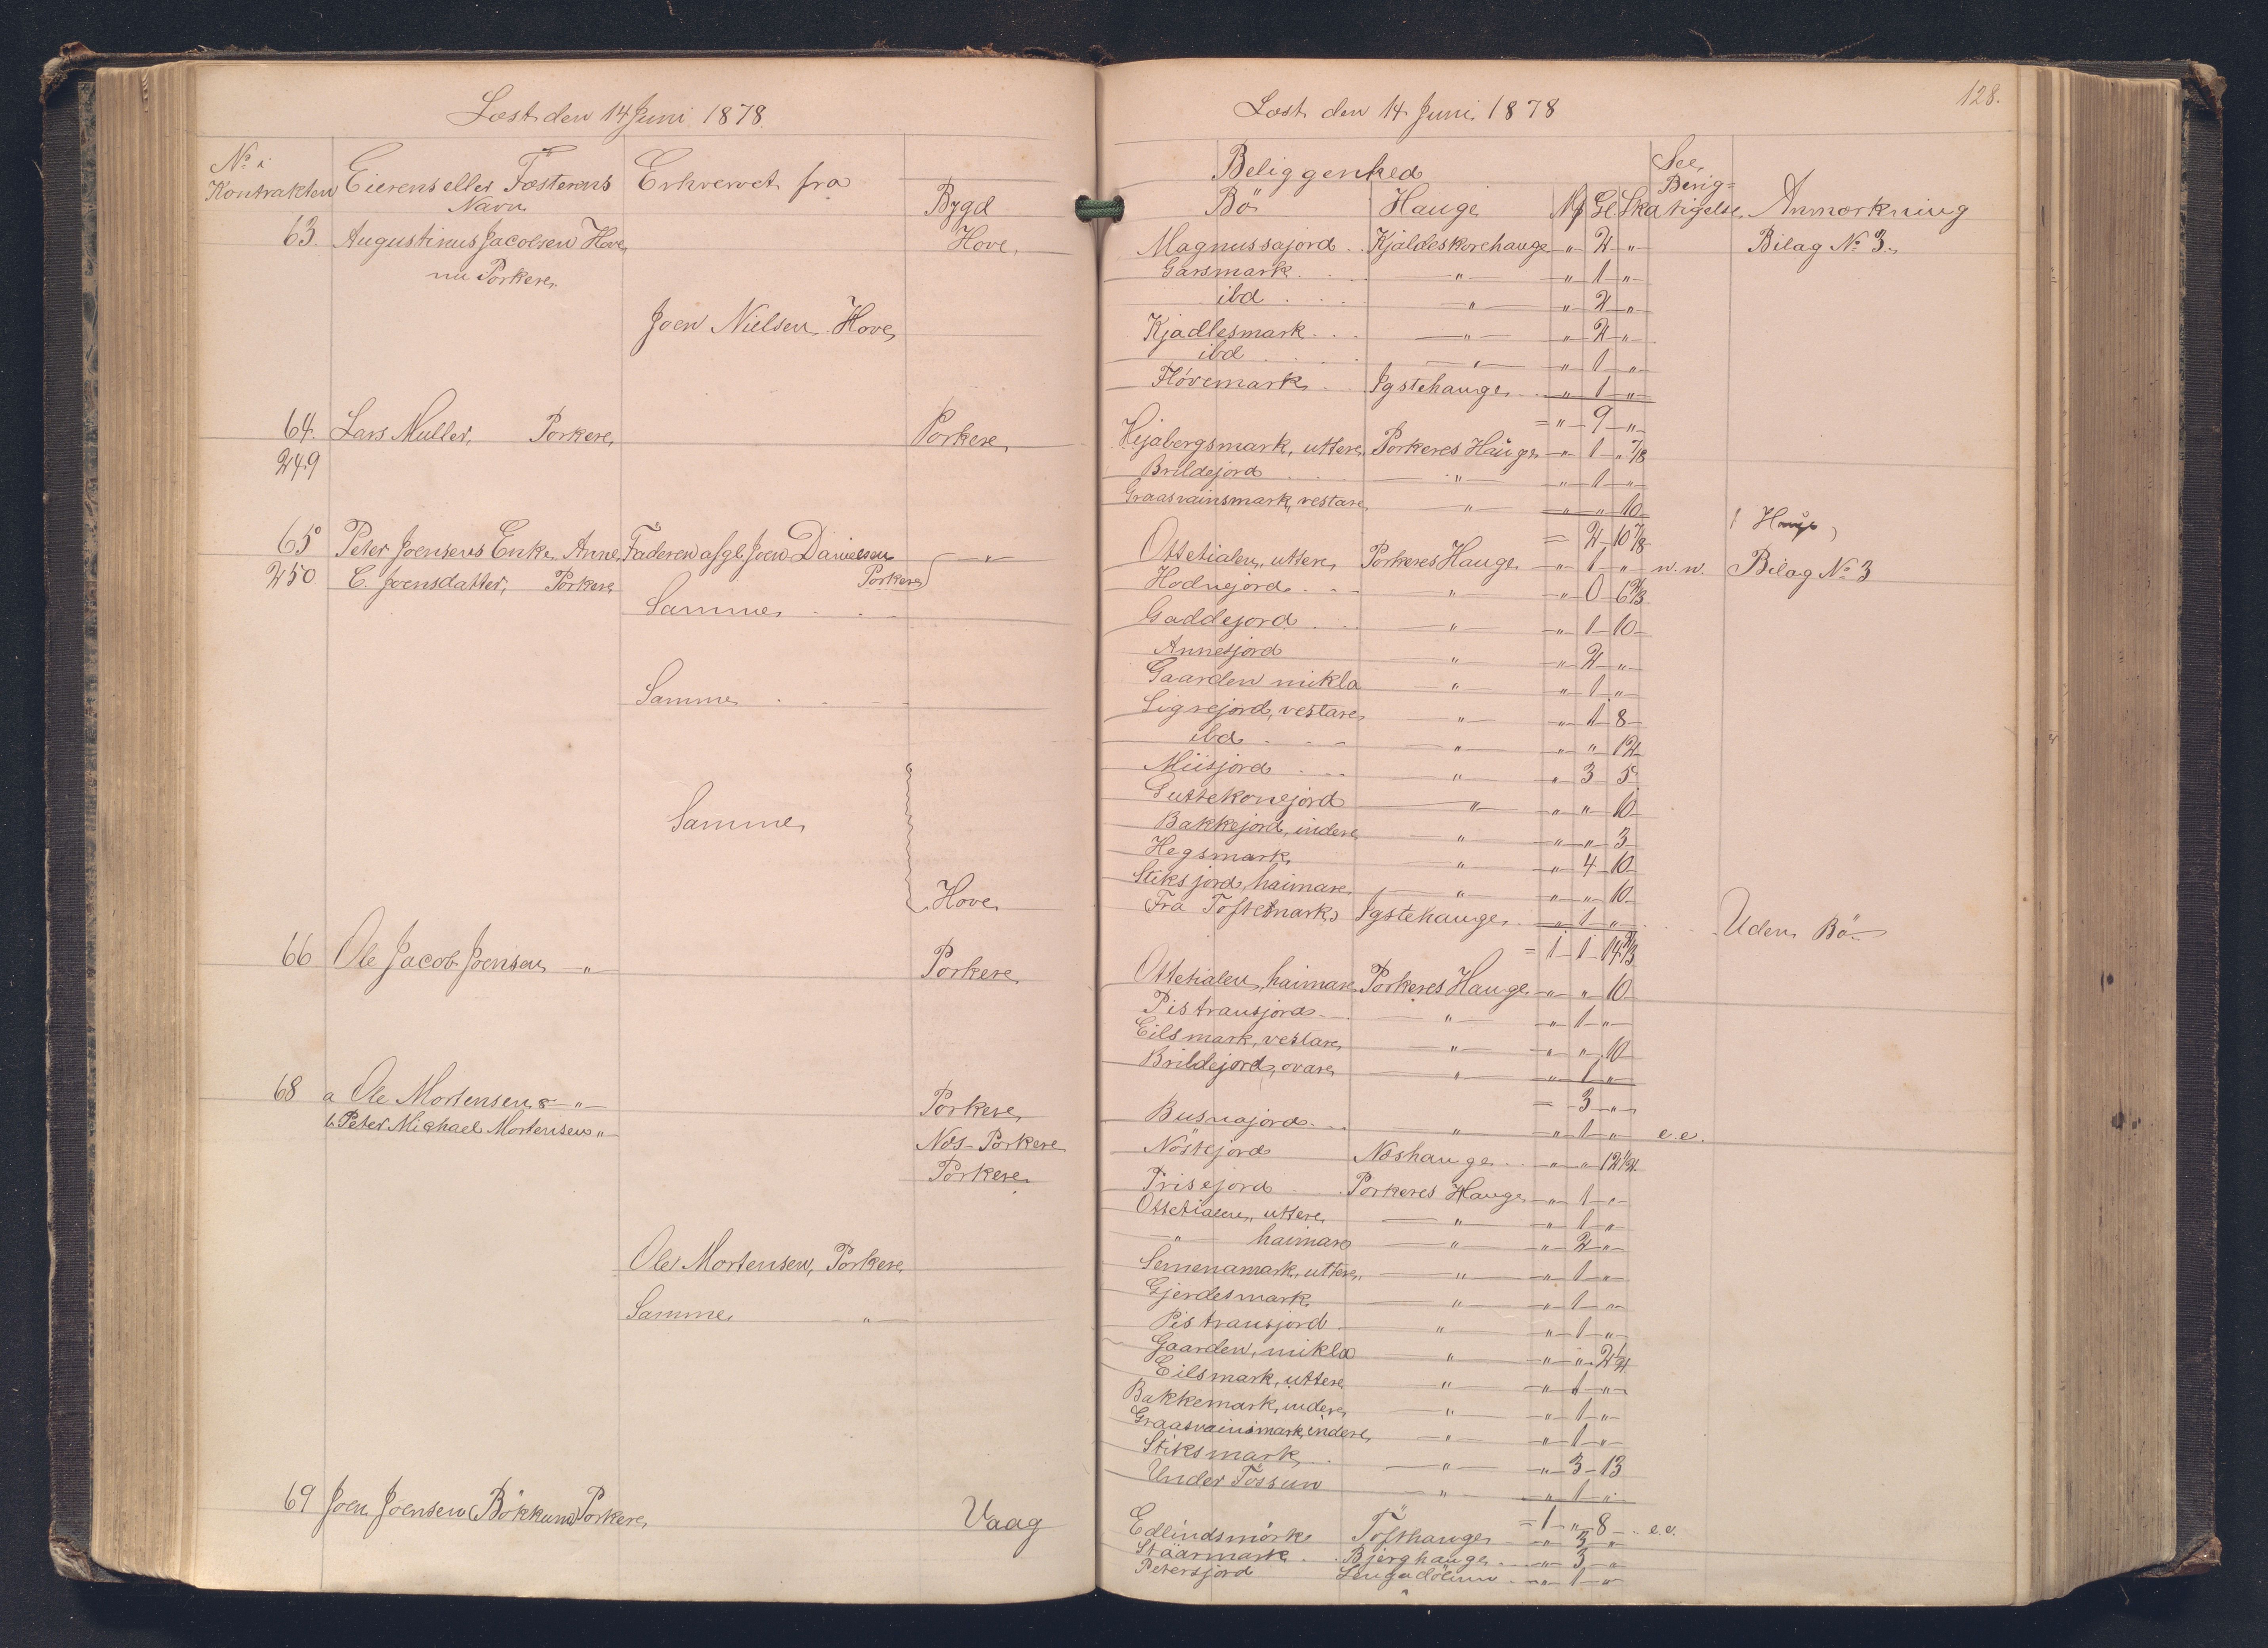 Læst den 14 Juni 1878.
No i Kontrakten
Eierens eller Fæsterens Navn
Erhvervet fra
Bygd
63. Augustinus Jacobsen Hove Hove,
nu Porkere
Joen Nielsen Hove
64. Lars Muller, Porkere, Porkere,
249
65 Peter Joensens Enke Anne Faderen afgl. Joen Danielsen — " —
250 C. Joensdatter, Porkere Porkere
Samme . .
Samme . . -
Samme
Hove
66 Ole Jacob Joensen — " — Porkere
68 a Ole Mortensen — " — Porkere,
b. Peter Michael Mortensen " — Næs-Porkere
Porkere
Ole Mortensen, Porkere
Samme — " —
69 Joen Joensen (Bökkum) Porkere, Vaag
128.
Læst den 14 Juni 1878
Beliggenhed
Bö Hauge M/ Gl. Ska See, Berigtigelse Anmærkning
Magnussajord . . Kjaldeskorehauge " 2 " Bilag No 3.
Garsmark . . . — " — " 1 "
ibd . . . — " — " 2 "
Kjadlesmark . . . — " — " 2 "
ibd . . . . — " — " 1 "
Hövemark . . Igstehauge . . " 1 "
= " 9 "
Hejabergsmark, uttere, Porkeres Hauge " 1 " 7/8
Brildejord . . . — " — " 1 "
Graasvainsmark, vestare — " — " " 10
= 2 10 7/8 Hauge
Ottetialen, uttere, Porkeres Hauge " 1 " n.n. Bilag No 3
Hodnejord . . . — " — " 0 6 2/3
Gaddejord . . . — " — " 1 10
Annesjord — " — " 2 "
Gaarden mikla — " — " 1 "
Signejord, vestare, — " — " 1 8
ibd . . . — " — " " 12
Miisjord . . . — " — " 3 5
Guttekonejord — " — " " 10
Bakkejord, indere — " — " " 3
Hegsmark — " — " 4 10
Stiksjord, haimare — " — " " 10
Fra Toftemark Igstehauge . . " 1 " . . . Uden Bö
= 1 1 14 2/3
Ottetialen, haimare Porkeres Hauge " " 10
Pistransjord . . — " — " 1 "
Eilsmark, vestare, — " — " " 10
Brildejord, ovare, — " — " 1 "
= 3 "
Busnajord . . . — " — " 1 " e.e.
Nöstejord Næshauge . . " " 12 1/2
Trisejord . . Porkeres Hauge " 1 "
Ottetialen, uttere, — " — " 1 "
— " — haimare — " — " 2 "
Semenamark, uttere, — " — " 1 "
Gjerdesmark — " — " 1 "
Pistransjord . — " — " 1 "
Gaarden, mikla — " — " " 2 1/2
Eilsmark, uttere — " — " 1 "
Bakkemark, indere, — " — " 1 "
Graasvainsmark, indere, — " — " 1 "
Stiksmark, . . — " — " 3 13
Under Tössun — " — " 1 "
= 1 " 8 . . e.e.
Edlindsmörk Tofthauge " 3 "
Stäarmark . . Bjerghauge . . " 3 "
Petersjord Lengadölum . . " 1 "